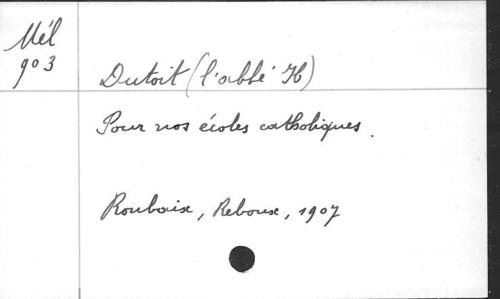 Mél
903
Dutoit (l'abbé H)
Pour nos écoles catholiques.
Roubaix, Reboux, 1907